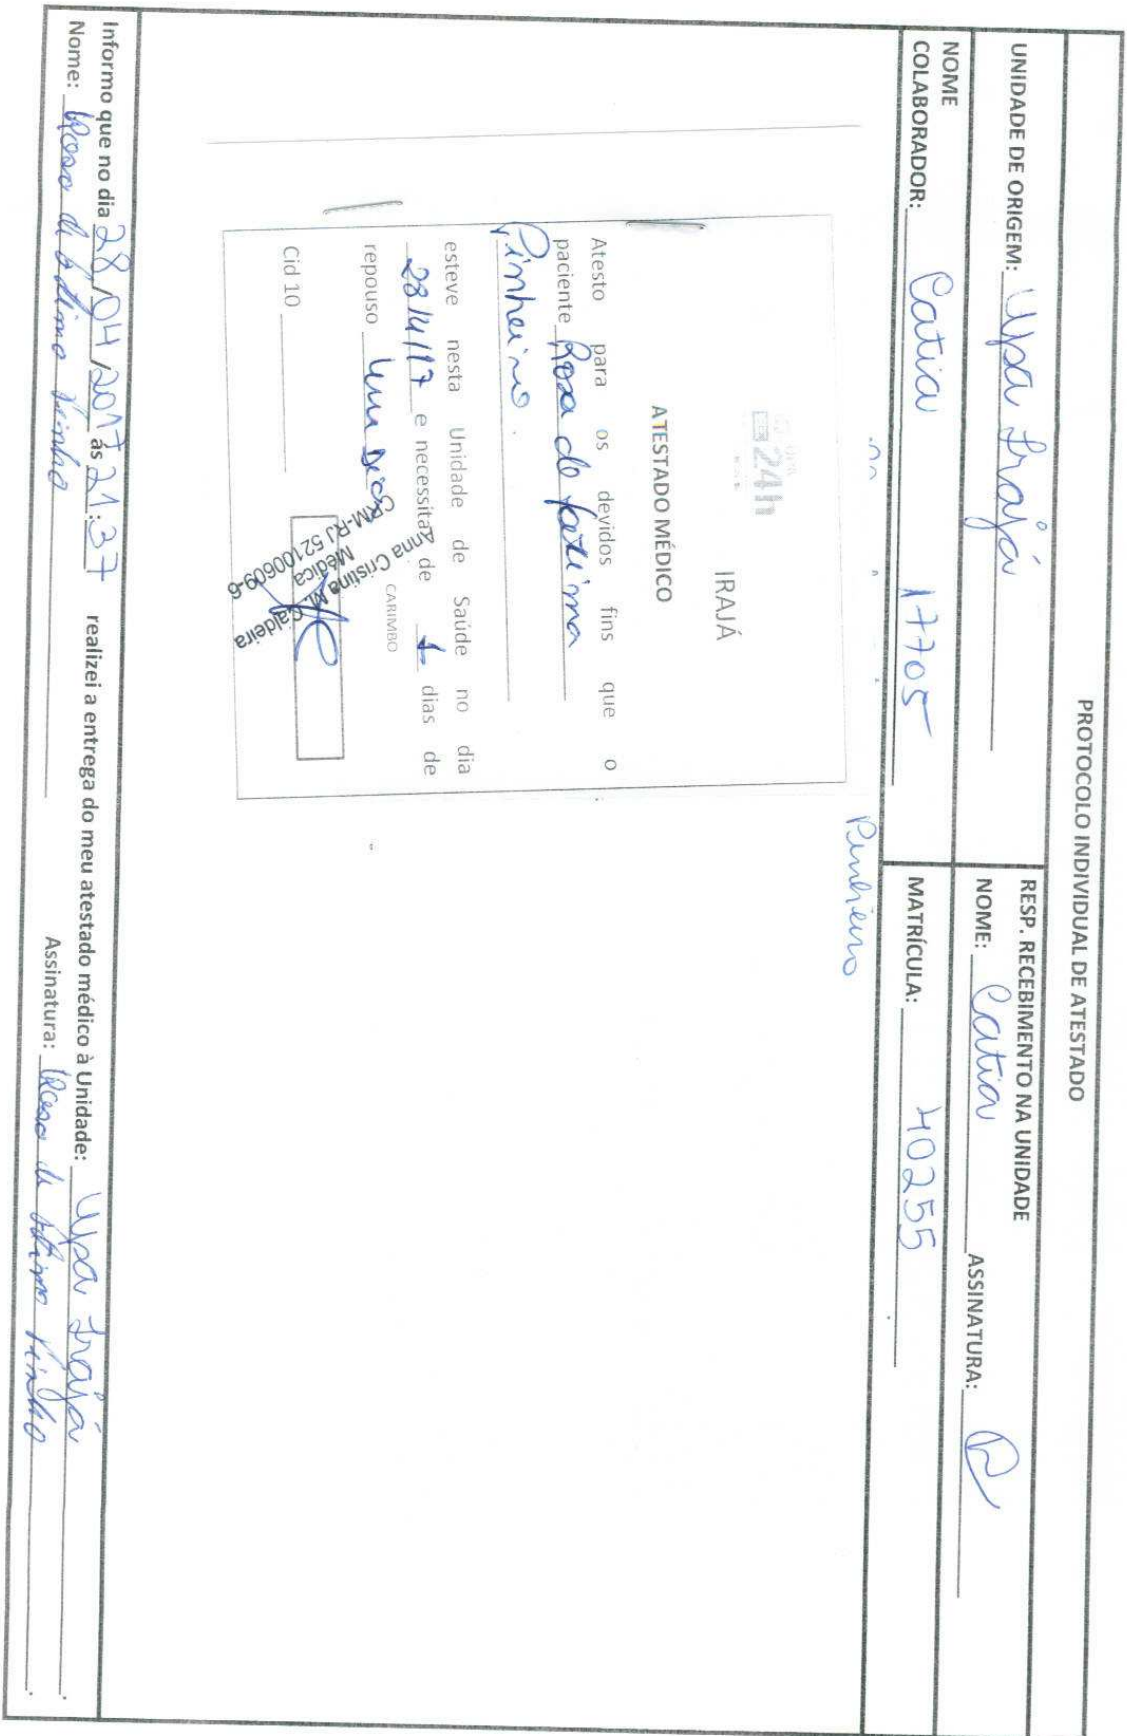 PROTOCOLO INDIVIDUAL DE ATESTADO
UNIDADE DE ORIGEM: Upa Irajá
RESP. RECEBIMENTO NA UNIDADE
NOME: Catia ASSINATURA:
NOME
COLABORADOR: Catia 17705
MATRÍCULA: 40255
Pinheiro
UPA
24h
IRAJÁ
ATESTADO MÉDICO
Atesto para os devidos fins que o
paciente Rosa de fatima
Pinheiro.
esteve nesta Unidade de Saúde no dia
28/4/17 e necessita de 1 dias de
repouso um Dia
CARIMBO
Anna Cristina M. Caldeira
Médica
CRM-RJ 52100609-6
Cid 10
Informo que no dia 28/04/2017 às 21:37 realizei a entrega do meu atestado médico à Unidade: Upa Irajá.
Nome: Rosa de Fatima Pinho Assinatura: Rosa de Fatima Pinho.